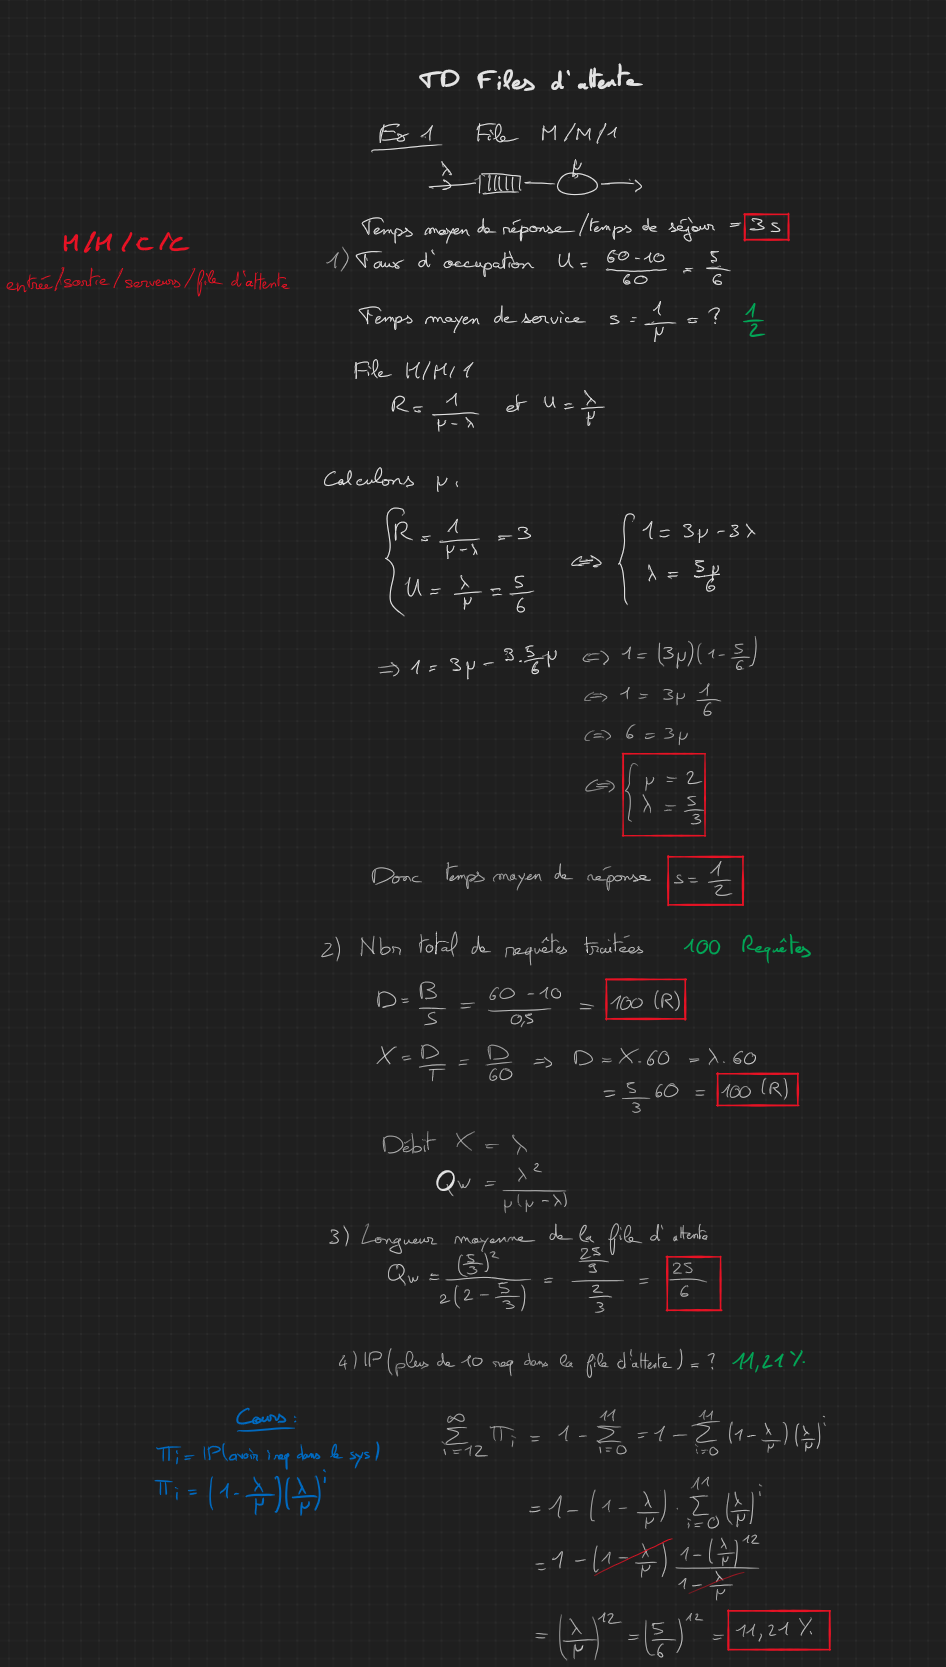 TD Files d'attente
Ex 1 File M/M/1
λ μ
Temps moyen de réponse/temps de séjour = 3 s
M/M/C/C
entrée/sortie/serveurs/file d'attente
1) Taux d'occupation U = (60-10)/60 = 5/6
Temps moyen de service s = 1/μ = ? 1/2
File M/M/1
R = 1/(μ-λ) et U = λ/μ
Calculons μ.
{ R = 1/(μ-λ) = 3 ⇔ { 1 = 3μ - 3λ
U = λ/μ = 5/6 λ = 5μ/6
⇒ 1 = 3μ - 3.5/6 μ ⇔ 1 = (3μ)(1 - 5/6)
⇔ 1 = 3μ 1/6
⇔ 6 = 3μ
⇔ { μ = 2
λ = 5/3
Donc temps moyen de réponse s = 1/2
2) Nbr total de requêtes traitées 100 Requêtes
D = B/S = (60-10)/0,5 = 100 (R)
X = D/T = D/60 ⇒ D = X.60 = λ.60
= 5/3 60 = 100 (R)
Débit X = λ
Qw = λ²/(μ(μ-λ))
3) Longueur moyenne de la file d'attente
Qw = (5/3)²/(2(2 - 5/3)) = (25/9)/(2/3) = 25/6
4) IP(plus de 10 req dans la file d'attente) = ? 11,21 %
Cours :
Πi = IP(avoir i req dans le sys)
Πi = (1 - λ/μ)(λ/μ)^i
∑_{i=12}^{∞} Πi = 1 - ∑_{i=0}^{11} = 1 - ∑_{i=0}^{11} (1 - λ/μ)(λ/μ)^i
= 1 - (1 - λ/μ) . ∑_{i=0}^{11} (λ/μ)^i
= 1 - (1 - λ/μ) (1 - (λ/μ)^12)/(1 - λ/μ)
= (λ/μ)^12 = (5/6)^12 = 11,21 %